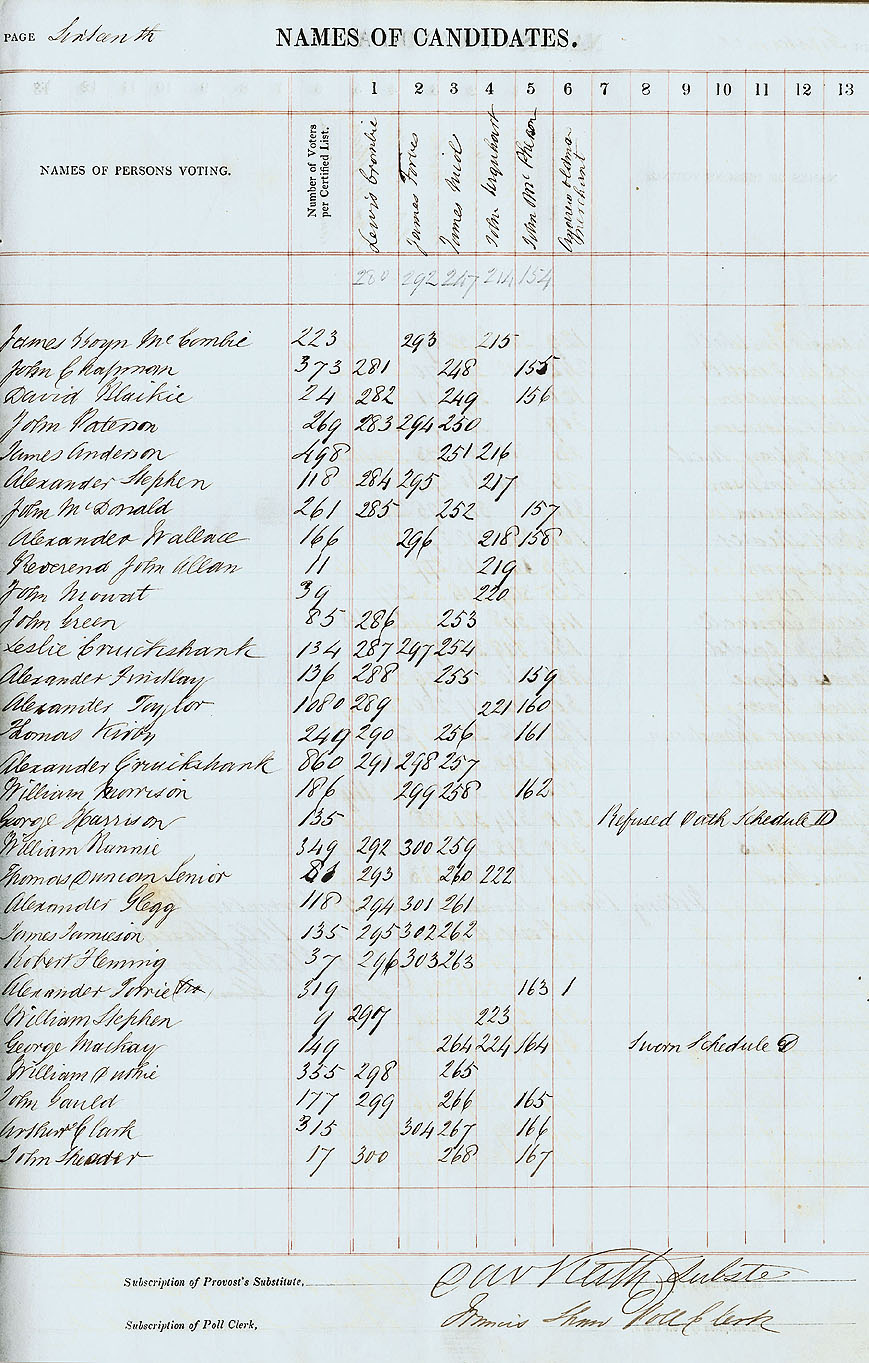 PAGE
NAMES OF CANDIDATES.
1 2 3 4 5 6 7 8 9 10 11 12 13
NAMES OF PERSONS VOTING.
Number of Voters per Certified List.
Lewis Crombie
James Forbes
James
John Urquhart
John McPherson
Andrew
merchant
280 292 247 214 154
James Boyn McCombie 223 293 215
John Chapman 373 281 248 155
David Blaikie 24 282 249 156
John Paterson 269 283 294 250
James Anderson 498 251 216
Alexander Stephen 118 284 295 217
John McDonald 261 285 252 157
Alexander Wallace 166 296 218 158
Reverend John Allan 11 219
John Mowat 39 220
John Green 85 286 253
Leslie Cruickshank 134 287 297 254
Alexander Findlay 136 288 255 159
Alexander Taylor 1080 289 221 160
Thomas Kirby 249 290 256 161
Alexander Cruickshank 860 291 298 257
William Morrison 186 299 258 162
George Harrison 135 Refused Oath Schedule D
William Rennie 349 292 300 259
Thomas Duncan Senior 293 260 222
Alexander Glegg 118 294 301 261
James Jamieson 135 295 302 262
Robert Fleming 37 296 303 263
Alexander Torrie 319 163 1
William Stephen 9 297 223
George Mackay 149 264 224 164 Sworn Schedule D
William Duthie 355 298 265
John Gauld 177 299 266 165
Arthur Clark 315 304 267 166
John 17 300 268 167
Subscription of Provost's Substitute, Subste
Subscription of Poll Clerk, Francis Shaw Poll Clerk